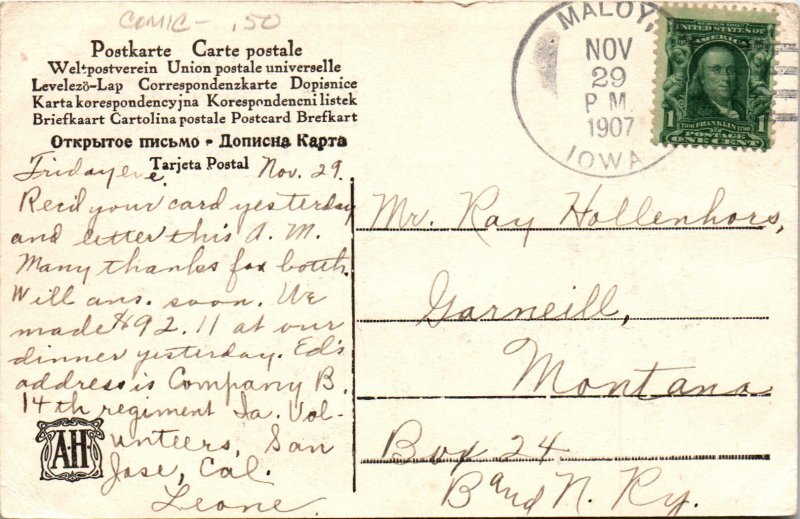 COMIC - .50
Postkarte Carte postale
Weltpostverein Union postale universelle
Levelezö-Lap Correspondenzkarte Dopisnice
Karta korespondencyjna Korespondencni listek
Briefkaart Cartolina postale Postcard Brefkart
Открытое письмо - Дописна Карта
Tarjeta Postal
Friday eve. Nov. 29.
Rec'd your card yesterday
and letter this A. M.
Many thanks for both.
Will ans. soon. We
made $92.11 at our
dinner yesterday. Ed's
address is Company B.
14th regiment Ia. Vol-
unteers, San
Jose, Cal.
Leone.
A·H
MALOY,
NOV
29
P M
1907
IOWA
SERIES 1902
UNITED STATES OF
AMERICA
1706 FRANKLIN 1790
1 POSTAGE 1
ONE CENT
Mr. Ray Hollenhors,
Garneill,
Montana
Box 24
B and N. Ry.